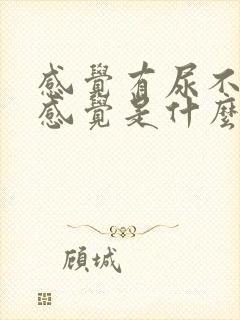 感覺有尿不
感覺是什麼
顾城